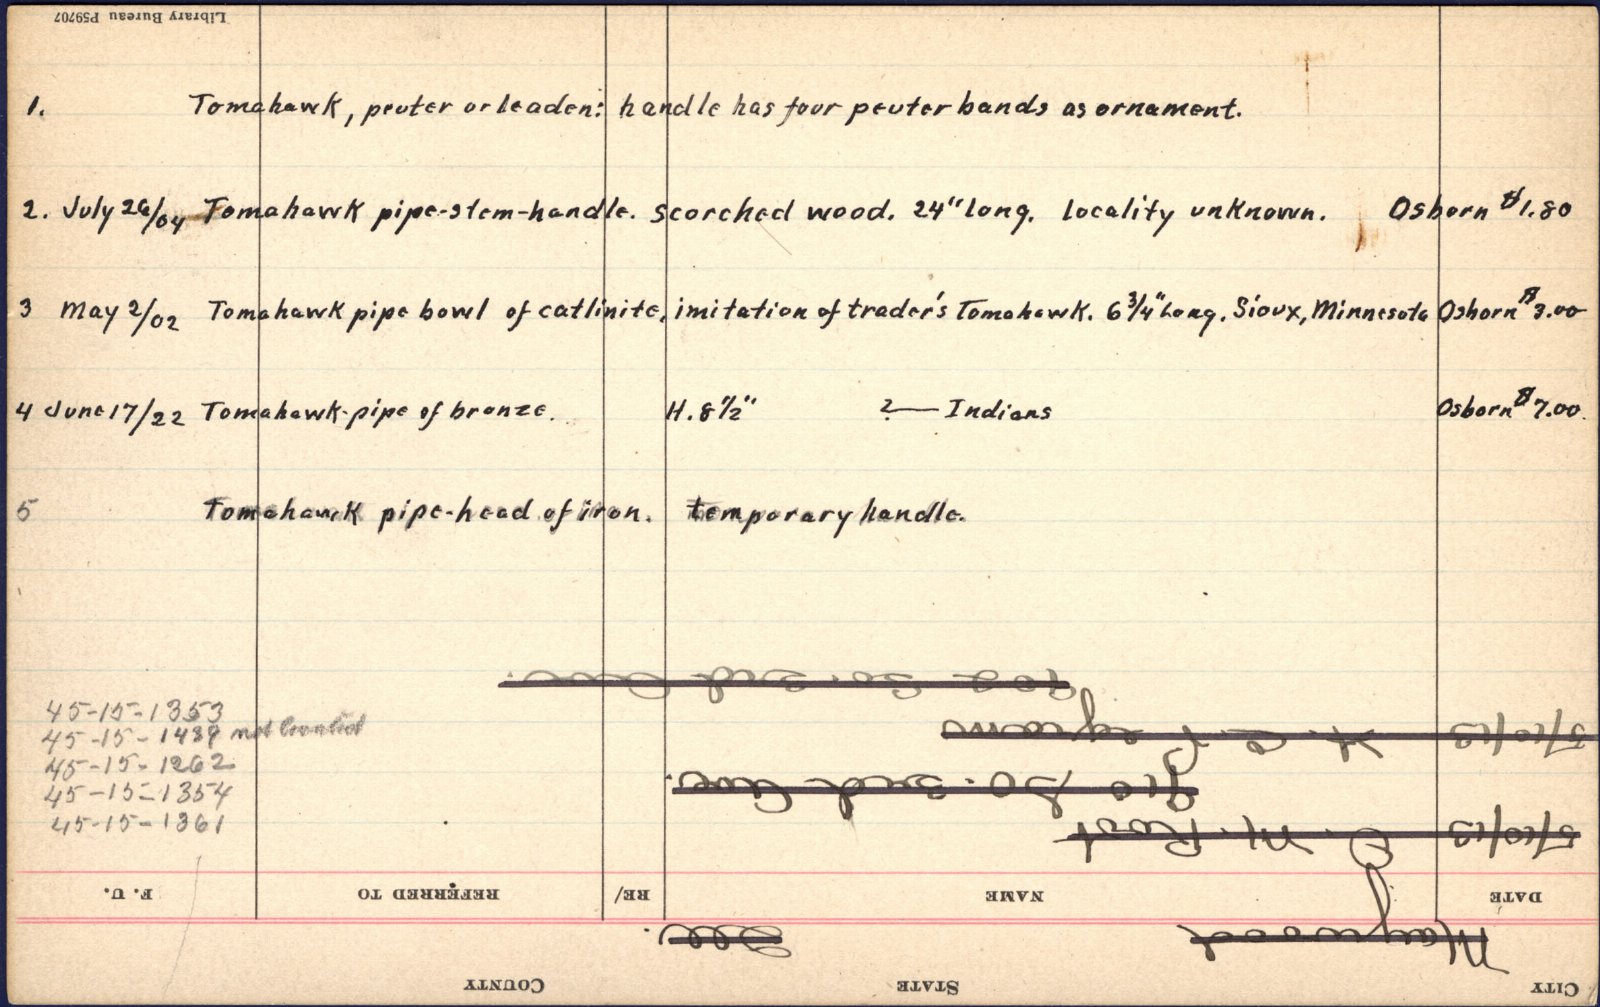 Library Bureau P59707
1. Tomahawk, peuter or leaden: handle has four peuter bands as ornament.
2. July 26/04 Tomahawk pipe-stem-handle. scorched wood. 24" long. locality unknown. Osborn $1.80
3 May 2/02 Tomahawk pipe bowl of catlinite, imitation of trader's Tomahawk. 6 3/4" Long. Sioux, Minnesota Osborn $3.00
4 June 17/22 Tomahawk-pipe of bronze. H. 8 1/2" ?— Indians Osborn $7.00.
5 Tomahawk pipe-head of iron. temporary handle.
902 So. 2nd Ave.
45-15-1353
45-15-1489 not located
5/10/13
45-15-1262
910 So. 3rd Ave.
45-15-1354
45-15-1361
5/10/13 O. M. Root
F. U. REFERRED TO RE/ NAME DATE
Maywood Ill.
COUNTY STATE CITY